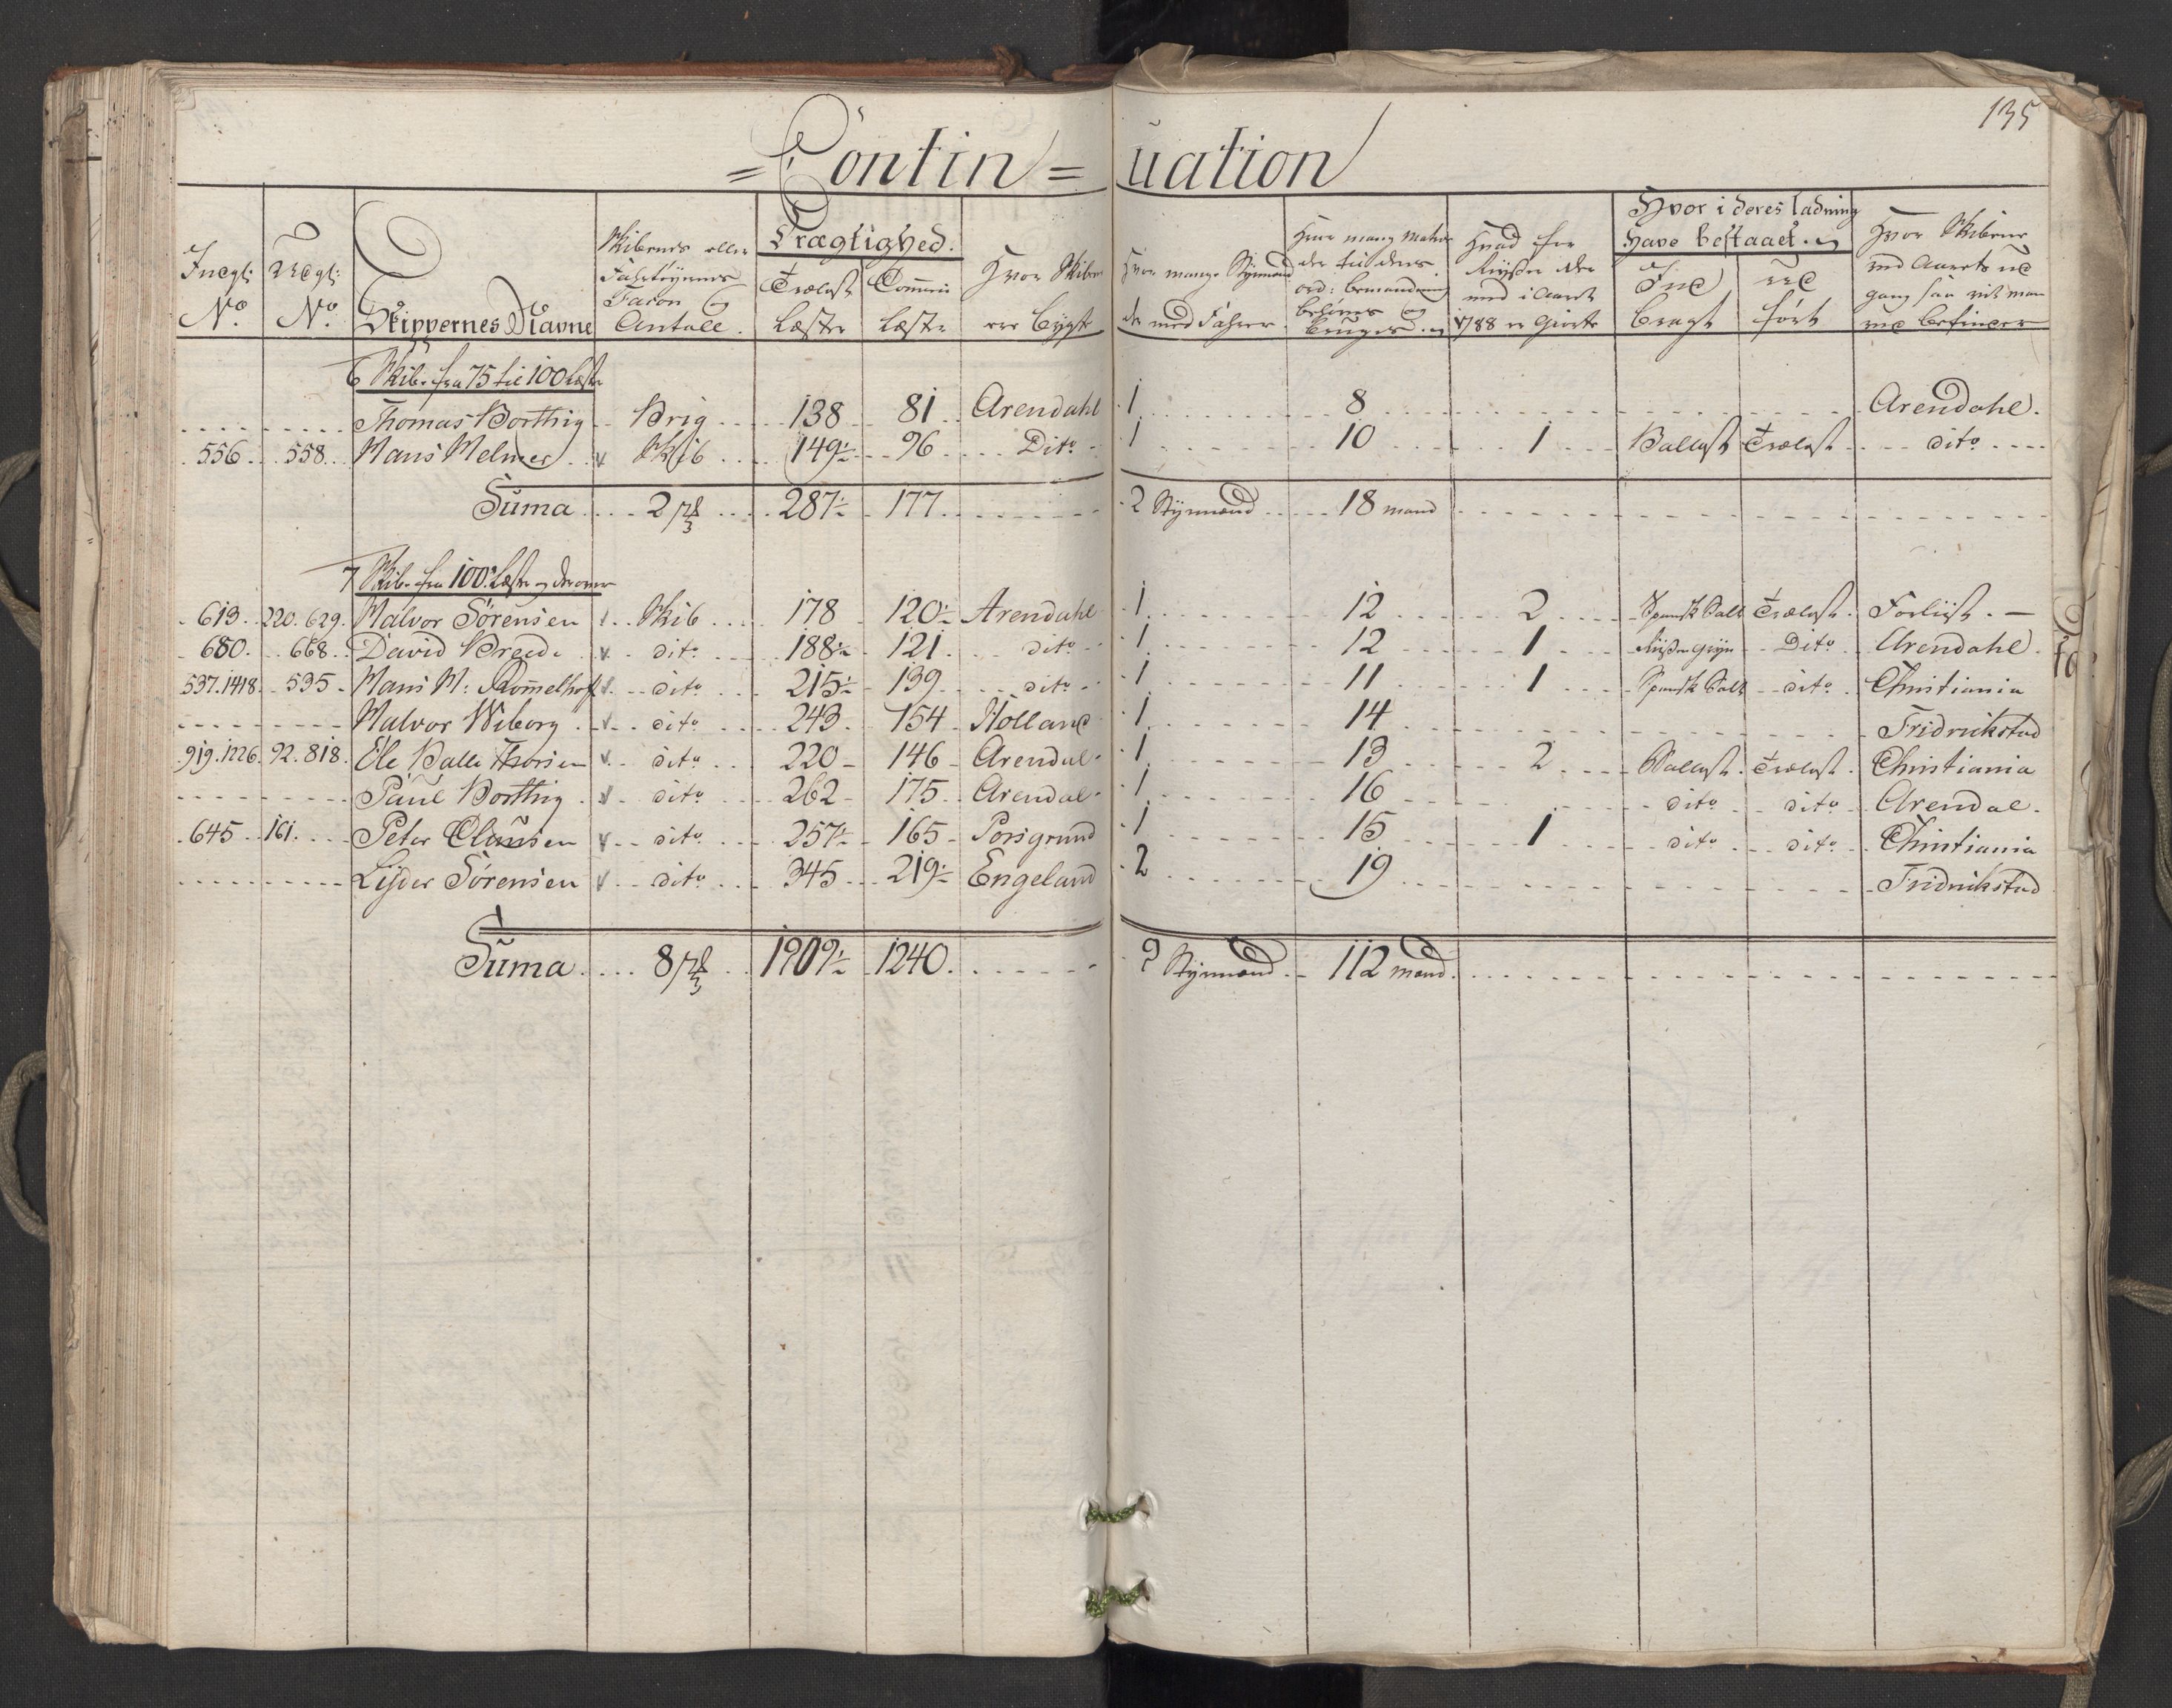 135
= Contin = uation
Indgl: No.
Udgl: No.
Skippernes Nafvne
Skibenes eller Fahrtøyernes Facon og Antall.
Drægtighed.
Trælast Læster
Commerce Læster
Hvor Skibene ere bygt
Hvor mange Styrmænd der med Fahrer.
Huor mang Matroser der til deres ord: bemanding behøves og bruges
Hvad for Reyser der med i Aaret 1788 er giorte
Hvor i deres Ladning Have bestaaet
Ind bragt
Ud ført
Hvor Skibene ved Aarets ud gang saa vit man ved befinder
6 Skibe fra 75 til 100 Læster
Thomas Borthig Brig 138 81 Arendahl 1 8 Arendahl.
556 558 Hans Melmer v Skib 149½ 96 Dito 1 10 1 Ballast Trælast dito
Suma 2 287½ 177 2 Styrmænd 18 mand
7 Skibe fra 100 Læster og derover
613 220. 629. Halvor Sörensen v Skib 178 120½ Arendahl 1 12 2 Spansk Salt Trælast Forliist. —
680. 668 David Brede v dito 188½ 121 dito 1 12 1 Dito Arendahl.
537. 1418 535 Hans M: Rommelhof v dito 215½ 139 dito 1 11 1 Spansk Salt dito Christiania
Halvor Wiborg v dito 243 154 Holland 1 14 Fridrickstad
919. 1226. 92. 818. Ole Balle Thorsen v dito 220 146 Arendal 1 13 2 Ballast Trælast Christiania
Paul Borthig v dito 262 175 Arendal 1 16 dito dito Arendal.
645 161. Peter Clausen v dito 257½ 165 Porsgrund 1 15 1 dito dito Christiania
Lyder Sörensen v dito 345 219½ Engeland 2 19 Fridrikstad
Suma 8 1909½ 1240 9 Styrmænd 112 mand